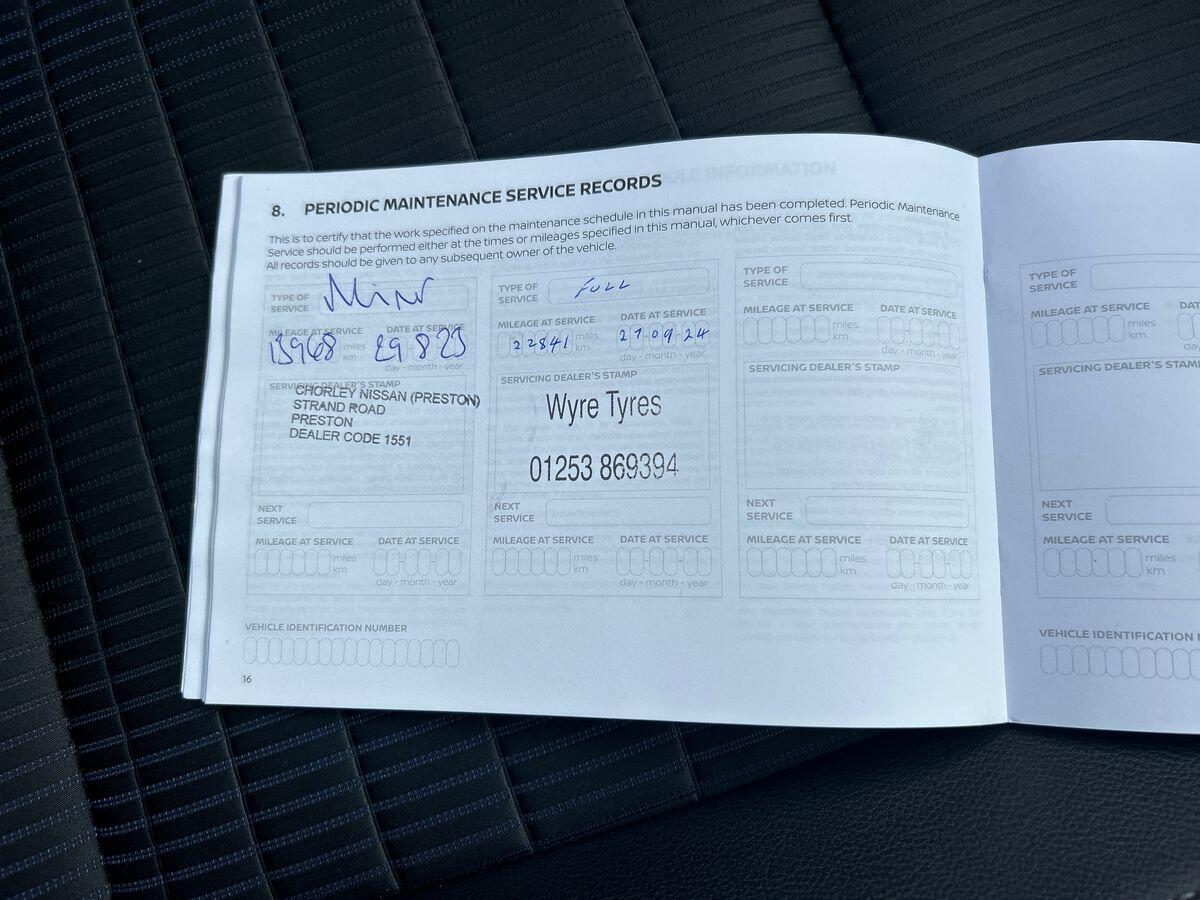 8. PERIODIC MAINTENANCE SERVICE RECORDS
This is to certify that the work specified on the maintenance schedule in this manual has been completed. Periodic Maintenance
Service should be performed either at the times or mileages specified in this manual, whichever comes first.
All records should be given to any subsequent owner of the vehicle.
TYPE OF
SERVICE
MILEAGE AT SERVICE DATE AT SERVICE
13968 miles 29 8 23
km day - month - year
SERVICING DEALER'S STAMP
CHORLEY NISSAN (PRESTON)
STRAND ROAD
PRESTON
DEALER CODE 1551
NEXT
SERVICE
MILEAGE AT SERVICE DATE AT SERVICE
miles
km day - month - year
TYPE OF
SERVICE FULL
MILEAGE AT SERVICE DATE AT SERVICE
22841 miles 27-09-24
km day - month - year
SERVICING DEALER'S STAMP
Wyre Tyres
01253 869394
NEXT
SERVICE
MILEAGE AT SERVICE DATE AT SERVICE
miles
km day - month - year
TYPE OF
SERVICE
MILEAGE AT SERVICE DATE AT SERVICE
miles
km day - month - year
SERVICING DEALER'S STAMP
NEXT
SERVICE
MILEAGE AT SERVICE DATE AT SERVICE
miles
km day - month - year
VEHICLE IDENTIFICATION NUMBER
16
TYPE OF
SERVICE
MILEAGE AT SERVICE
miles
km
SERVICING DEALER'S
NEXT
SERVICE
MILEAGE AT SERVICE
miles
km
VEHICLE IDENTIFICATION